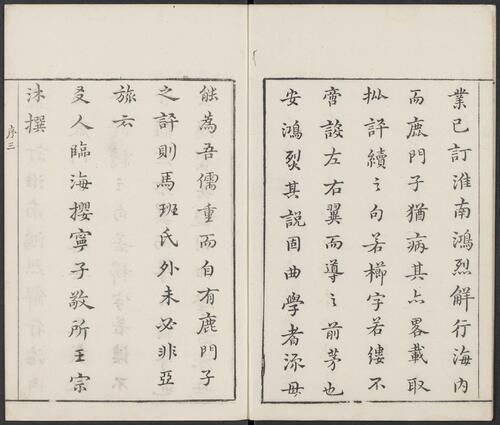 業已訂淮南鴻烈解行海內
而鹿門子猶病其亦畧載取
批評續之句若櫛字若縷不
啻設左右翼而導之前茅也
安鴻烈其說固曲學者添毋
能為吾儒重而自有鹿門子
之評則馬班氏外未必非亞
旅云
友人臨海攖寧子敬所王宗
沐撰
序三